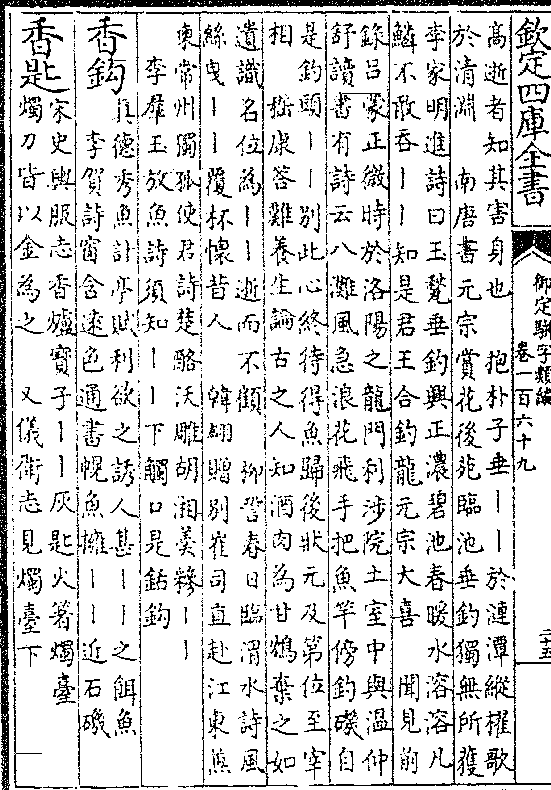 欽定四庫全書
御定駢字類編
卷一百六十九
二十五
高逝者知其害身也　抱朴子垂丨丨於漣潭縱櫂歌
於清淵　南唐書元宗賞花後苑臨池垂釣獨無所獲
李家明進詩曰玉甃垂釣興正濃碧池春暖水溶溶凡
鱗不敢吞丨丨知是君王合釣龍元宗大喜　聞見前
錄吕蒙正微時於洛陽之龍門利涉院土室中與温仲
舒讀書有詩云八灘風急浪花飛手把魚竿傍釣磯自
是釣頭丨丨別此心終待得魚歸後狀元及第位至宰
相　嵇康答難養生論古之人知酒肉為甘鴆棄之如
遺識名位為丨丨逝而不顧　柳詧春日臨渭水詩風
絲曳丨丨覆杯懷昔人　韓翃贈別崔司直赴江東兼
柬常州獨孤使君詩楚酪沃雕胡湘羮糝丨丨
李羣玉放魚詩須知丨丨下觸口是銛鈎
香鈎
真德秀魚計亭賦利欲之誘人甚丨丨之餌魚
李賀詩窗含遠色通書幌魚擁丨丨近石磯
香匙
宋史輿服志香爐寶子丨丨灰匙火箸燭臺
燭刀皆以金為之　又儀衛志見燭臺下